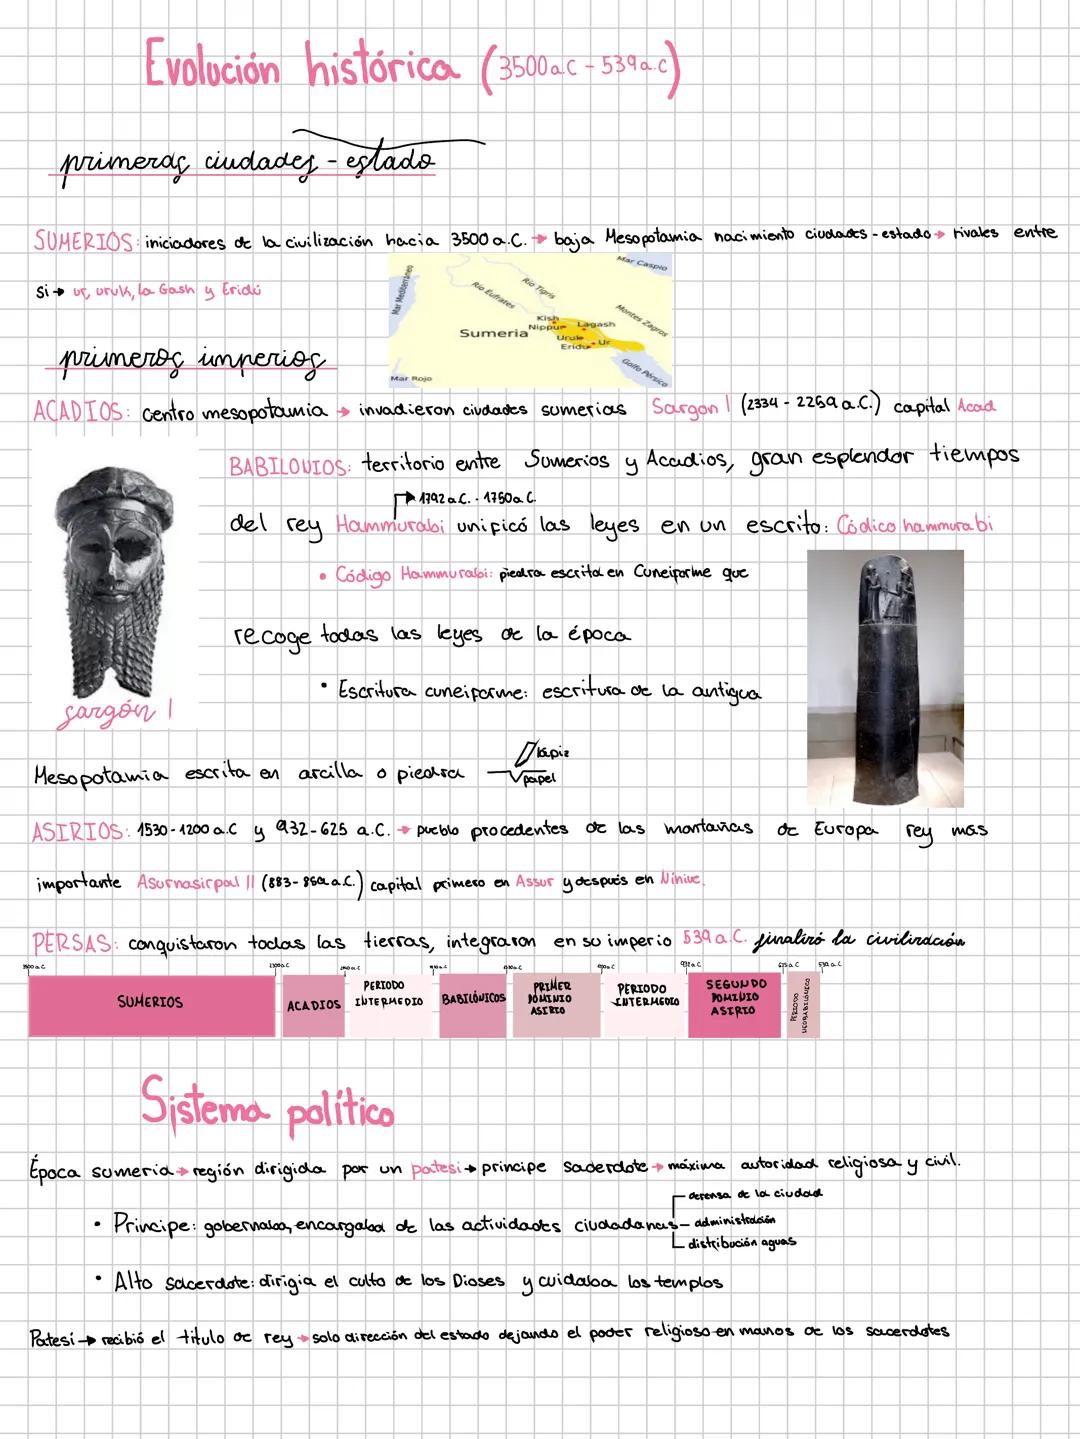 Evolución histórica (3500 a.C - 539 a.C)
primeras ciudades - estado
SUMERIOS: iniciadores de la civilización hacia 3500 a.C. → baja Mesopotamia nacimiento ciudades - estado → rivales entre
Mar Caspio
Mar Mediterráneo
Río Tigris
Río Eufrates
si → ur, uruk, la Gash y Eridú
Montes Zagros
Kish
Nippur
Lagash
Sumeria
Uruk
Ur
Eridu
Golfo Pérsico
Mar Rojo
primeros imperios
ACADIOS: Centro mesopotamia → invadieron ciudades sumerias Sargon I (2334 - 2269 a.C.) capital Acad
BABILONIOS: territorio entre Sumerios y Acadios, gran esplendor tiempos
→ 1792 a.C. - 1750 a.C.
del rey Hammurabi unificó las leyes en un escrito: Códico hammurabi
• Código Hammurabi: piedra escrita en Cuneiforme que
recoge todas las leyes de la época
• Escritura cuneiforme: escritura de la antigua
sargón I
lápiz
Mesopotamia escrita en arcilla o piedra
papel
ASIRIOS: 1530-1200 a.C y 932-625 a.C. → pueblo procedentes de las montañas de Europa rey mas
importante Asurnasirpal II (883-859 a.C.) capital primero en Assur y después en Nínive.
PERSAS: conquistaron todas las tierras, integraron en su imperio 539 a.C. finalizó la civilización
3500 a.C
932 a.C
625 a.C
539 a.C
SUMERIOS
ACADIOS
PERIODO INTERMEDIO
BABILÓNICOS
PRIMER DOMINIO ASIRIO
PERIODO INTERMEDIO
SEGUNDO DOMINIO ASIRIO
PERIODO NEOBABILÓNICO
Sistema político
Época sumeria → región dirigida por un patesi → principe saderdote → máxima autoridad religiosa y civil.
defensa de la ciudad
• Principe: gobernaba, encargaba de las actividades ciudadanas - administración
distribución aguas
• Alto sacerdote: dirigia el culto de los Dioses y cuidaba los templos
Patesi → recibió el titulo de rey → solo dirección del estado dejando el poder religioso en manos de los sacerdotes